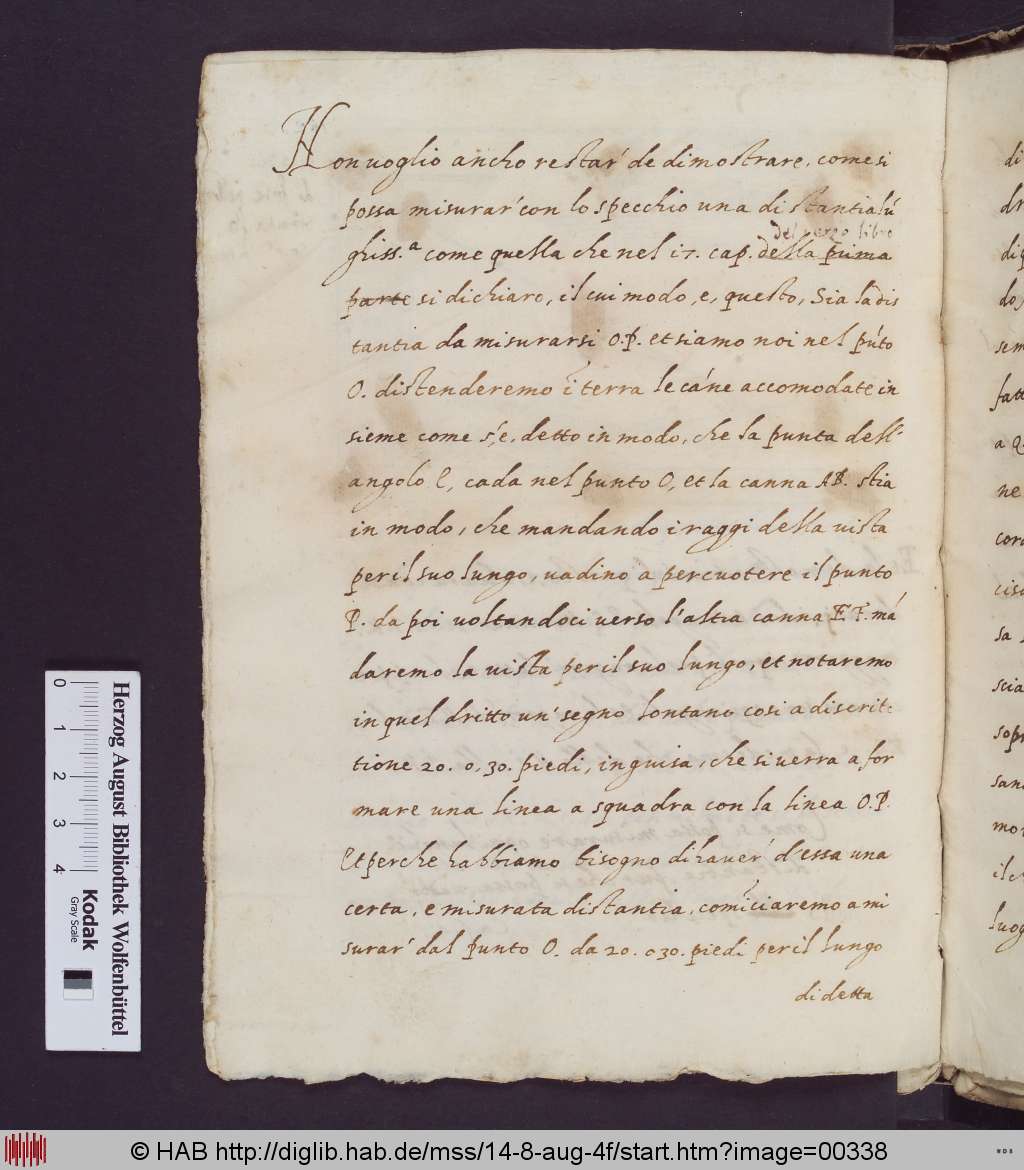 Non uoglio ancho restar' de dimostrare, come si
possa misurar' con lo specchio una distantia lú
del terzo libro
ghiss.ᵃ come quella che nel 17. cap. della prima
parte si dichiaro, il cui modo, e, questo, Sia la dis
tantia da misurarsi O.P. et siamo noi nel púto
O. distenderemo ĩ terra le cáne accomodate in
sieme come s'e, detto in modo, che la punta dell'
angolo E, cada nel punto O, et la canna AB. stia
in modo, che mandando i raggi della uista
per il suo lungo, uadino a percuotere il punto
P. da poi uoltandoci uerso l'altra canna E F. má
daremo la uista per il suo lungo, et notaremo
in quel dritto un' segno lontano cosi a discrit
tione 20. o, 30. piedi, in guisa, che si uerra a for
mare una linea a squadra con la linea O.P.
Et perche habbiamo bisogno di hauer' d'essa una
certa, e misurata distantia, comĩciaremo a mi
surar' dal punto O. da 20. o 30. piedi per il lungo
di detta
0 1 2 3 4
Herzog August Bibliothek Wolfenbüttel
Kodak
Gray Scale
di
dr
dig
dos
sem
fatt
a
ne
cora
cisa
sa
scia
sopr
sand
mor
il
luog
© HAB http://diglib.hab.de/mss/14-8-aug-4f/start.htm?image=00338